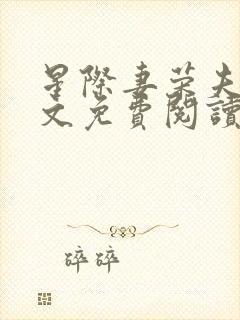 星際妻荣夫
文免費閱讀
碎碎